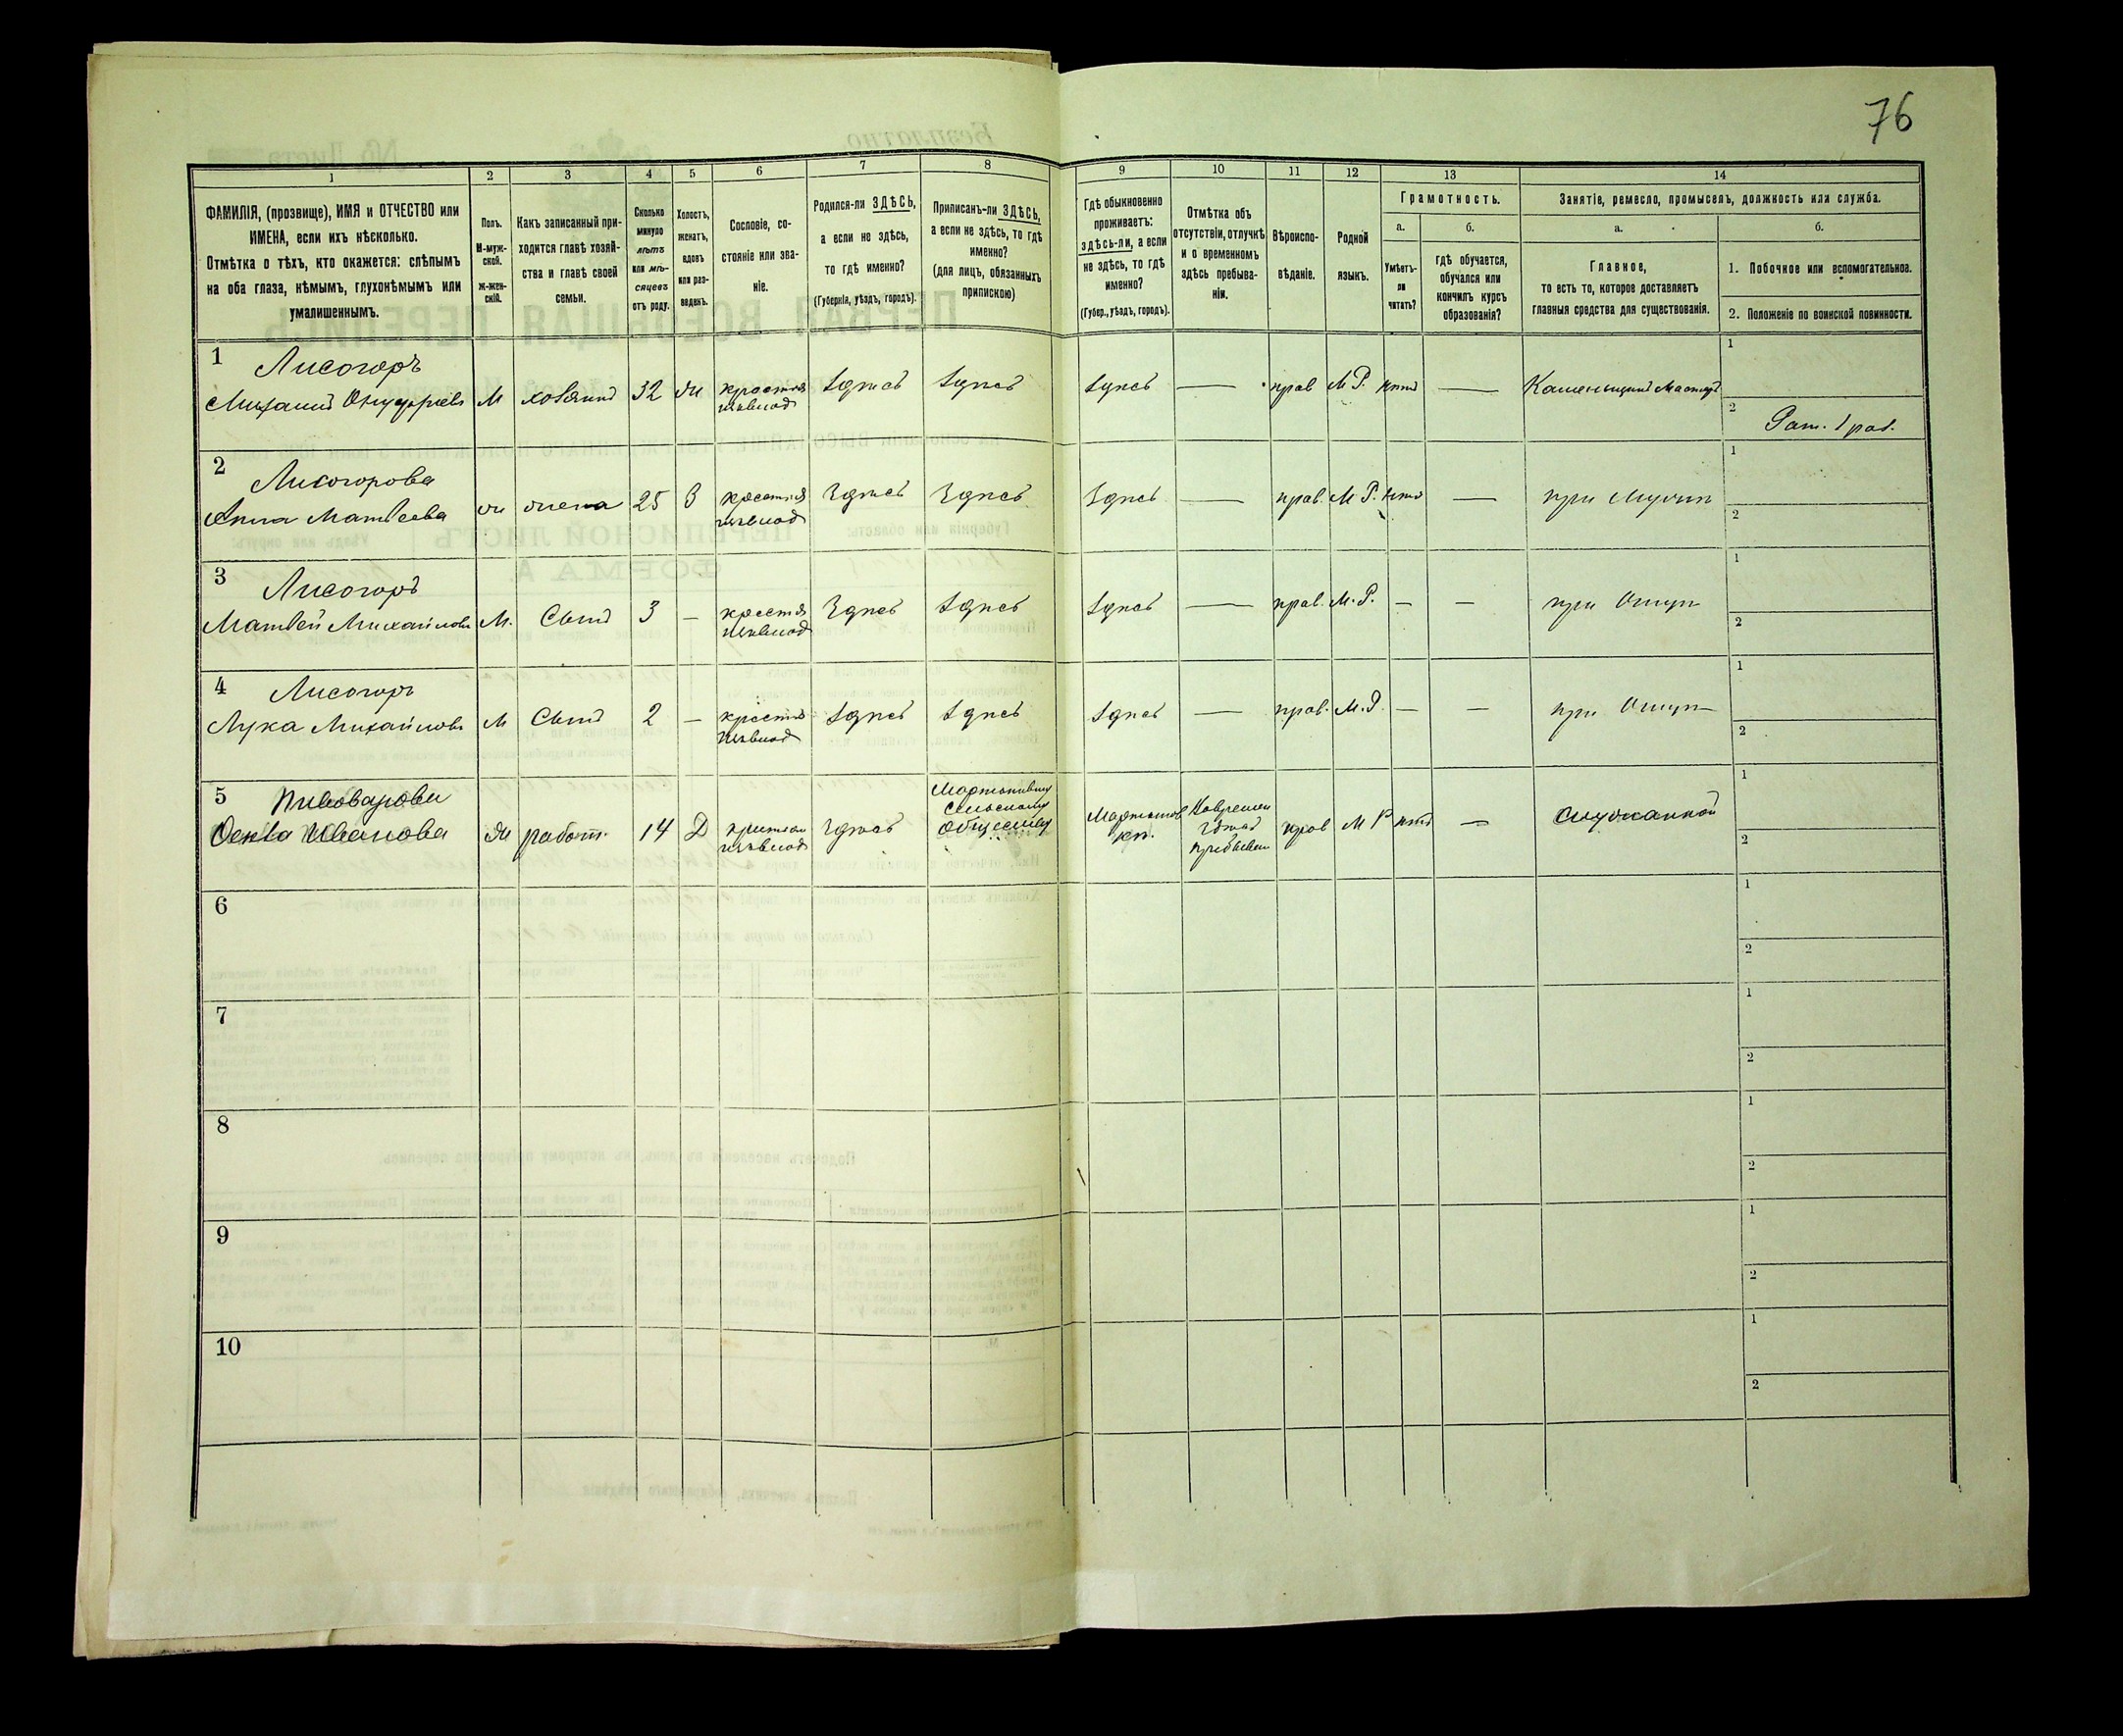 76
1
2
3
4
5
6
7
8
9
10
11
12
13
14
ФАМИЛІЯ, (прозвище), ИМЯ и ОТЧЕСТВО или
ИМЕНА, если ихъ нѣсколько.
Отмѣтка о тѣхъ, кто окажется: слѣпымъ
на оба глаза, нѣмымъ, глухонѣмымъ или
умалишеннымъ.
Полъ.
М-муж-
ской.
Ж-жен-
скій.
Какъ записанный при-
ходится главѣ хозяй-
ства и главѣ своей
семьи.
Сколько
минуло
лѣтъ
или мѣ-
сяцевъ
отъ роду.
Холостъ,
женатъ,
вдовъ
или раз-
веденъ.
Сословіе, со-
стояніе или зва-
ніе.
Родился-ли ЗДѢСЬ,
а если не здѣсь,
то гдѣ именно?
(Губернія, уѣздъ, городъ).
Приписанъ-ли ЗДѢСЬ,
а если не здѣсь, то гдѣ
именно?
(для лицъ, обязанныхъ
припискою)
Гдѣ обыкновенно
проживаетъ:
здѣсь-ли, а если
не здѣсь, то гдѣ
именно?
(Губер., уѣздъ, городъ).
Отмѣтка объ
отсутствіи, отлучкѣ
и о временномъ
здѣсь пребыва-
ніи.
Вѣроиспо-
вѣданіе.
Родной
языкъ.
Грамотность.
а.
Умѣетъ-
ли
читать?
б.
гдѣ обучается,
обучался или
кончилъ курсъ
образованія?
Занятіе, ремесло, промыселъ, должность или служба.
а.
Главное,
то есть то, которое доставляетъ
главныя средства для существованія.
б.
1. Побочное или вспомогательное.
2. Положеніе по воинской повинности.
1 Лисогоръ
Михаилъ Онуфріевъ М хозяинъ 32 ж Здѣсь Здѣсь Здѣсь — прав М Р. нѣтъ —
1
2 Рат. 1 раз.
2 Лисогорова
Анна Матвеева ж жена 25 З Здѣсь Здѣсь Здѣсь — прав. М Р. нѣтъ — при мужѣ
1
2
3 Лисогоръ
Матвей Михайловъ М. Сынъ 3 — Здѣсь Здѣсь Здѣсь — прав. М. Р. — — при Отцѣ
1
2
4 Лисогоръ
Лука Михайловъ М Сынъ 2 — Здѣсь Здѣсь Здѣсь — прав. М. Р. — — при Отцѣ
1
2
5 Пивоварова
Иванова ж работ. 14 Д Здѣсь прав М Р нѣтъ — служанкой
1
2
6
1
2
7
1
2
8
1
2
9
1
2
10
1
2